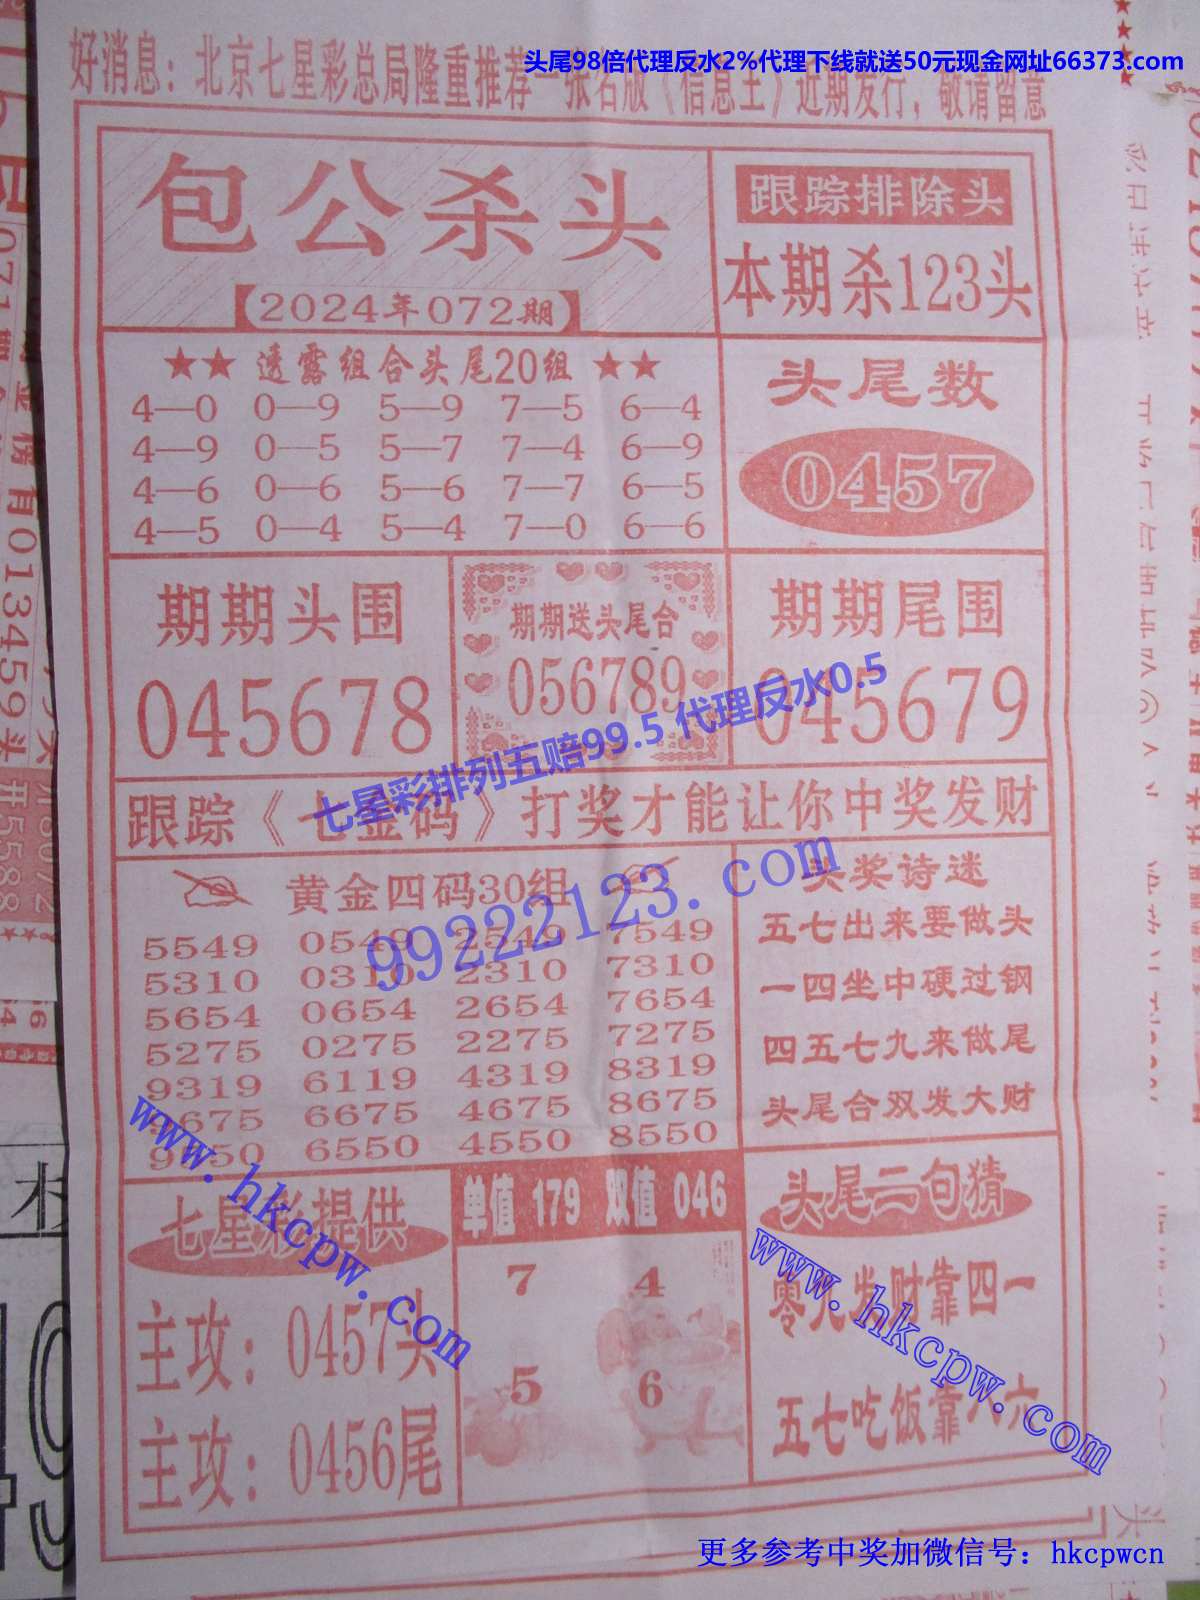 头尾98倍代理反水2%代理下线就送50元现金网址66373.com
好消息：北京七星彩总局隆重推荐一张名版《信息王》近期发行，敬请留意
包公杀头
【2024年072期】
跟踪排除头
本期杀123头
★★ 透露组合头尾20组 ★★
4—0 0—9 5—9 7—5 6—4
4—9 0—5 5—7 7—4 6—9
4—6 0—6 5—6 7—7 6—5
4—5 0—4 5—4 7—0 6—6
头尾数
0457
期期头围
045678
期期送头尾合
056789
期期尾围
045679
七星彩排列五赔99.5 代理反水0.5
跟踪《七金码》打奖才能让你中奖发财
99222123.com
黄金四码30组
5549 0549 2549 7549
5310 0310 2310 7310
5654 0654 2654 7654
5275 0275 2275 7275
9319 6119 4319 8319
9675 6675 4675 8675
9550 6550 4550 8550
头奖诗迷
五七出来要做头
一四坐中硬过钢
四五七九来做尾
头尾合双发大财
www.hkcpw.com
七星彩提供
主攻：0457头
主攻：0456尾
单值 179 双值 046
7 4
5 6
头尾二句猜
零九发财靠四一
五七吃饭靠八六
www.hkcpw.com
更多参考中奖加微信号：hkcpwcn